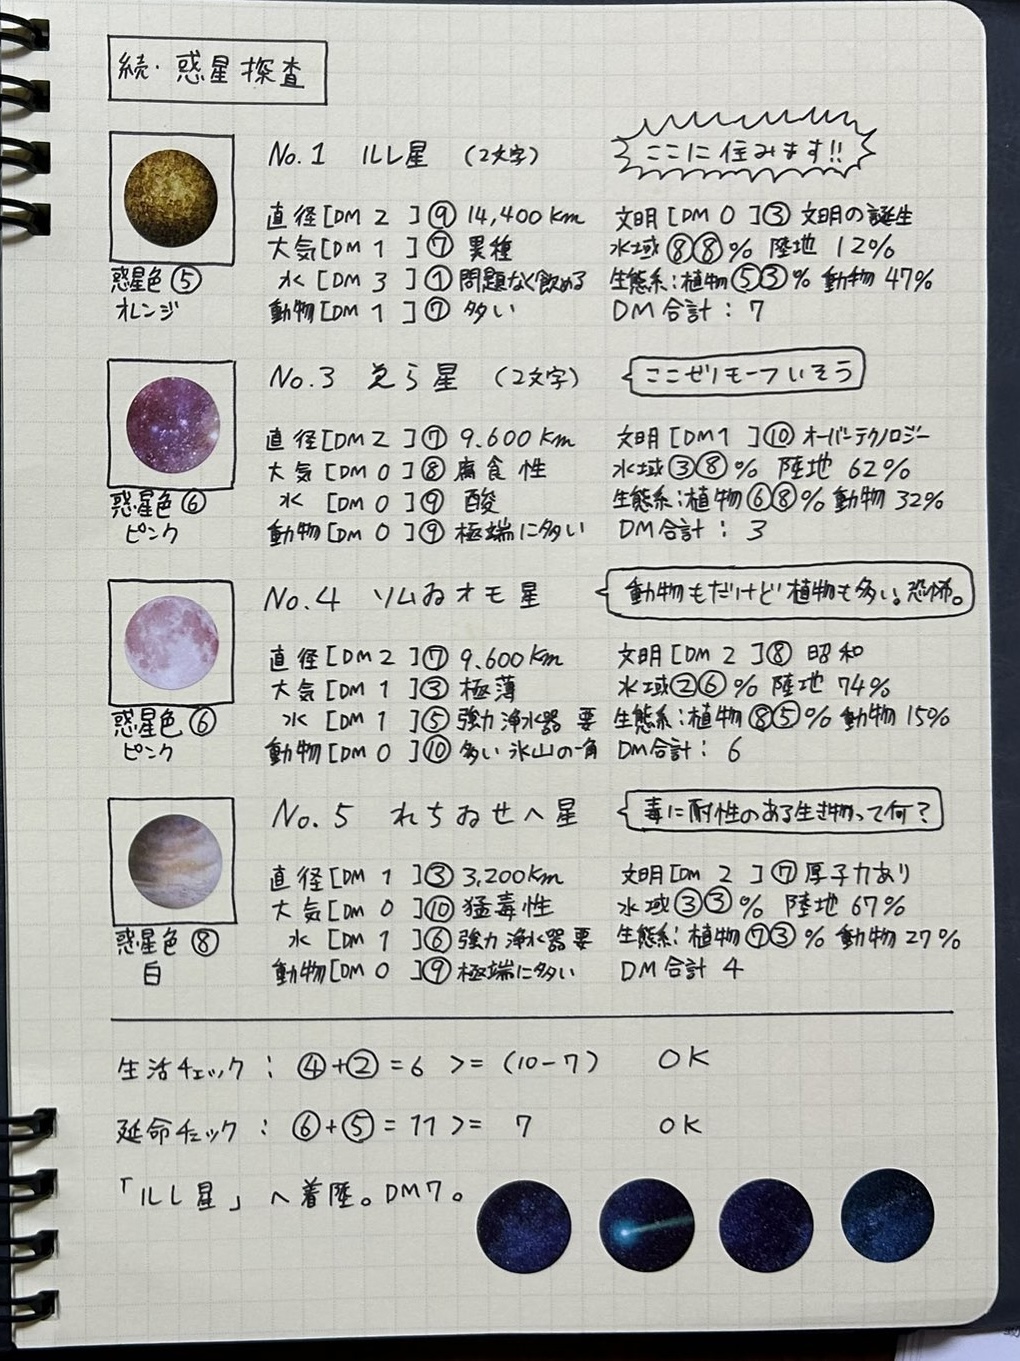 続・惑星探査
No.1 ルレ星 (2文字)
ここに住みます!!
直径[DM 2 ]⑨ 14,400km
文明[DM 0 ]③ 文明の誕生
大気[DM 1 ]⑦ 異種
水域⑧⑧% 陸地 12%
水[DM 3 ]① 問題なく飲める
生態系:植物⑤③% 動物 47%
動物[DM 1 ]⑦ 多い
DM合計: 7
惑星色⑤
オレンジ
No.3 ゑら星 (2文字)
直径[DM 2 ]⑦ 9.600km
文明[DM 1 ]⑩ オーバーテクノロジー
大気[DM 0 ]⑧ 腐食性
水域③⑧% 陸地 62%
水[DM 0 ]⑨ 酸
生態系:植物⑥⑧% 動物 32%
動物[DM 0 ]⑨ 極端に多い
DM合計: 3
惑星色⑥
ピンク
No.4 ソムゐオモ星
動物もだけど植物も多い。恐怖。
直径[DM 2 ]⑦ 9,600km
文明[DM 2 ]⑧ 昭和
大気[DM 1 ]③ 極薄
水域②⑥% 陸地 74%
水[DM 1 ]⑤ 強力浄水器 要
生態系:植物⑧⑤% 動物 15%
動物[DM 0 ]⑩ 多い 氷山の一角
DM合計: 6
惑星色⑥
ピンク
No.5 れちゐせへ星
毒に耐性のある生き物って何?
直径[DM 1 ]③ 3,200km
文明[DM 2 ]⑦ 原子力あり
大気[DM 0 ]⑩ 猛毒性
水域③③% 陸地 67%
水[DM 1 ]⑥ 強力浄水器 要
生態系:植物⑦③% 動物 27%
動物[DM 0 ]⑨ 極端に多い
DM合計 4
惑星色⑧
白
生活チェック: ④+②=6 >= (10-7) OK
延命チェック: ⑥+⑤=11 >= 7 OK
「ルレ星」へ着陸。DM7。